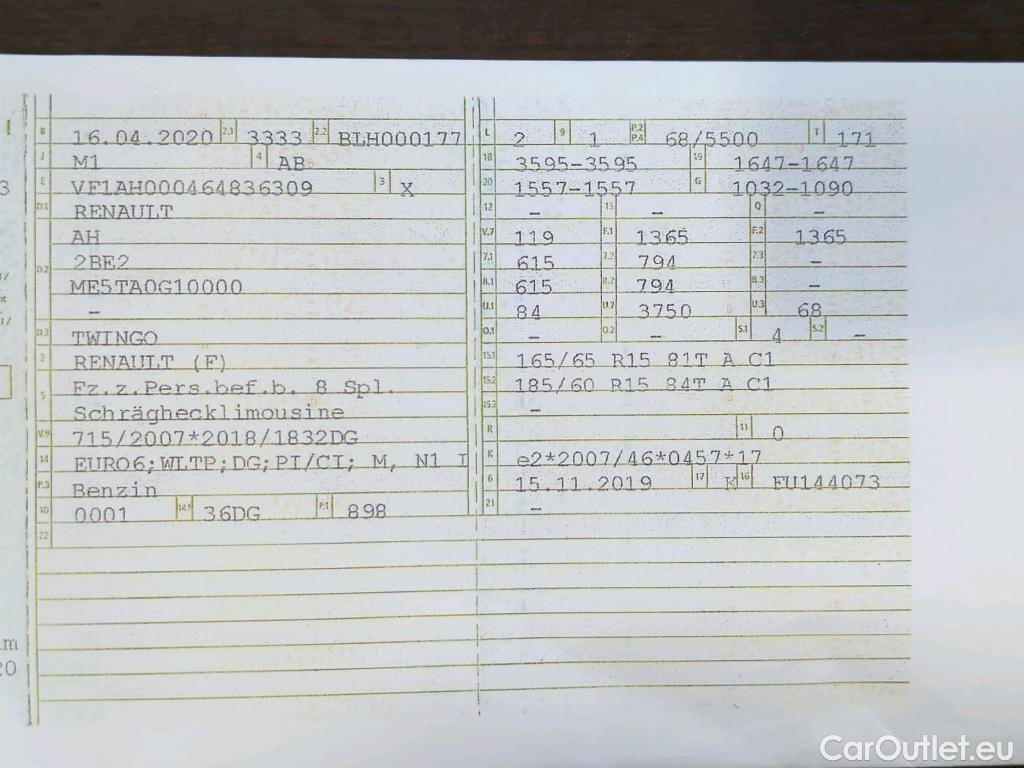 B 16.04.2020 2.1 3333 2.2 BLH000177
J M1 4 AB
E VF1AH000464836309 3 X
D.1 RENAULT
AH
D.2 2BE2
ME5TA0G10000
-
D.3 TWINGO
2 RENAULT (F)
5 Fz.z.Pers.bef.b. 8 Spl.
Schräghecklimousine
V.9 715/2007*2018/1832DG
14 EURO6;WLTP;DG;PI/CI; M, N1 I
P.3 Benzin
10 0001 14.1 36DG P.1 898
22
L 2 9 1 P.2 P.4 68/5500 T 171
18 3595-3595 19 1647-1647
20 1557-1557 G 1032-1090
12 - 13 - Q -
V.7 119 F.1 1365 F.2 1365
7.1 615 7.2 794 7.3 -
8.1 615 8.2 794 8.3 -
U.1 84 U.2 3750 U.3 68
O.1 - O.2 - S.1 4 S.2 -
15.1 165/65 R15 81T A C1
15.2 185/60 R15 84T A C1
15.3 -
R 11 0
K e2*2007/46*0457*17
6 15.11.2019 17 K 16 FU144073
21 -
CarOutlet.eu